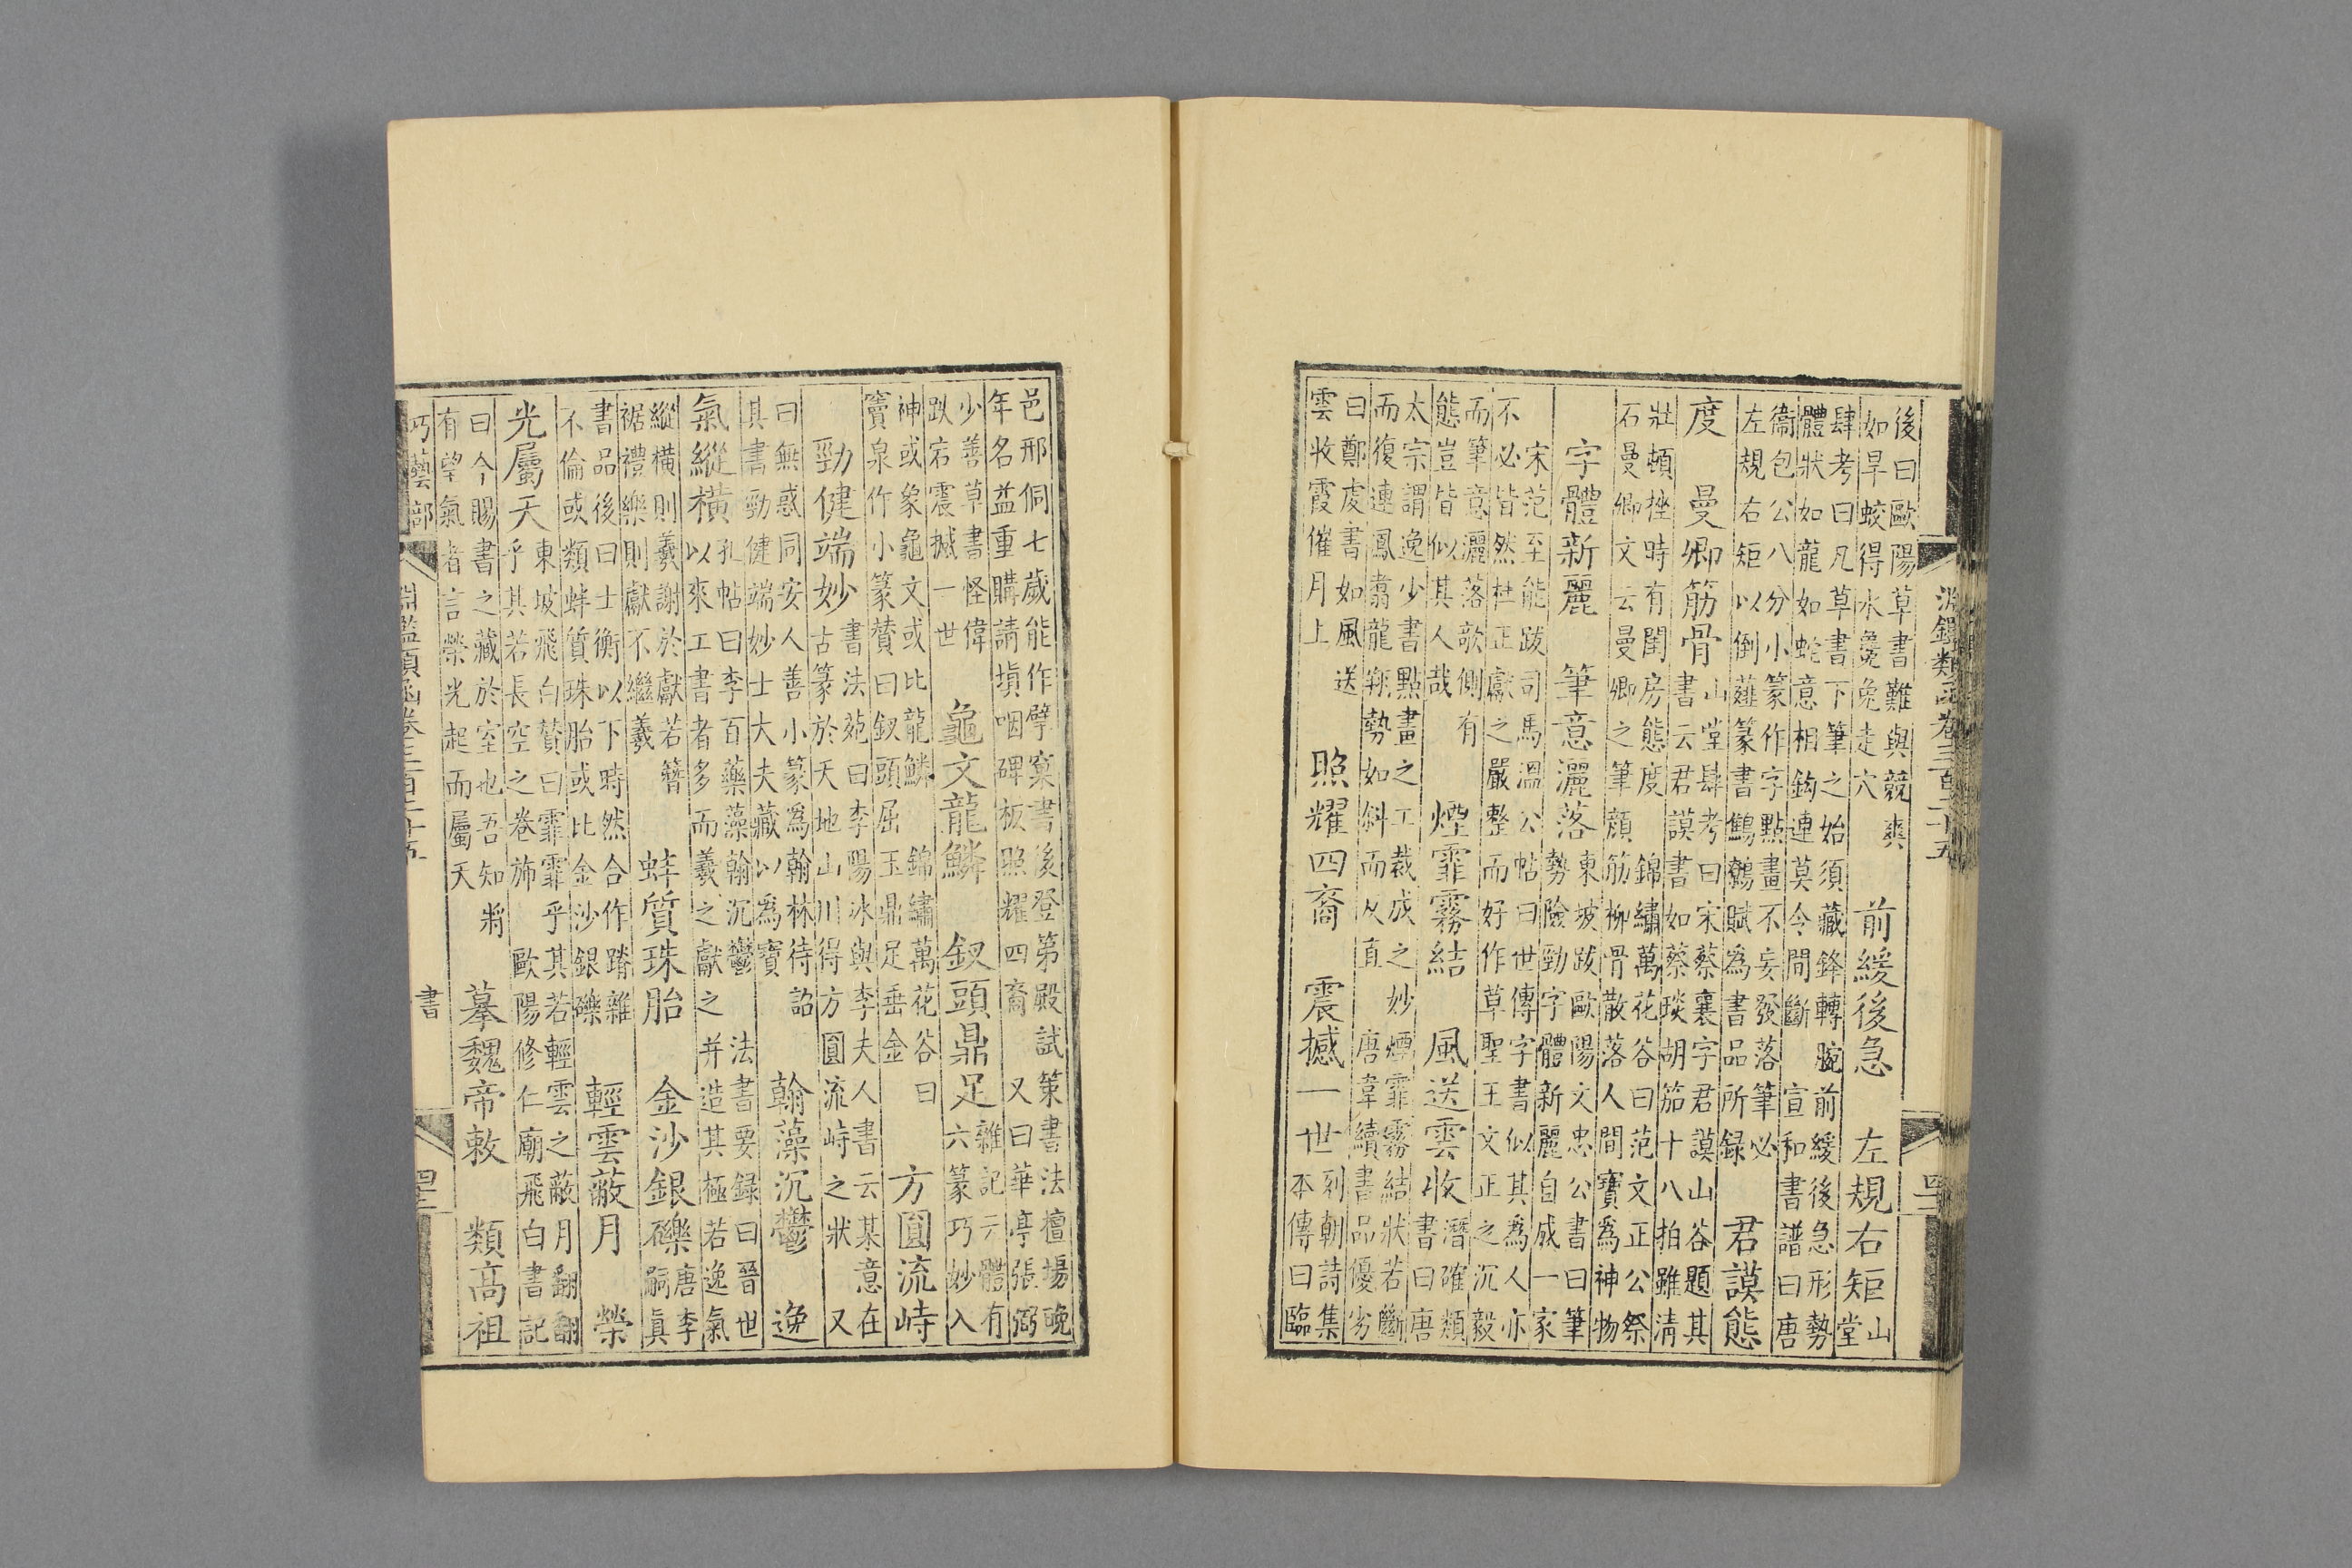 淵鑑類函卷三百二十五
後曰歐陽草書難與競爽
如旱蛟得水毚兔走穴
前緩後急　左規右矩
山
堂
肆考曰凡草書下筆之始須藏鋒轉腕前緩後急形勢
體狀如龍如蛇意相鈎連莫令間斷　宣和書譜曰唐
衞包公八分小篆作字點畫不妄發落筆必
左規右矩以倒薤篆書鷦鷯賦為書品所録
君謨態
度　曼卿筋骨
山堂肆考曰宋蔡襄字君謨山谷題其
書云君謨書如蔡琰胡笳十八拍雖清
壯頓挫時有閨房態度　錦繡萬花谷曰范文正公祭
石曼卿文云曼卿之筆顔筋柳骨散落人間寶為神物
字體新麗　筆意灑落
東坡跋歐陽文忠公書曰筆
勢險勁字體新麗自成一家
宋范至能跋司馬溫公帖曰世傳字書似其為人亦
不必皆然杜正獻之嚴整而好作草聖王文正之沉毅
而筆意灑落欹側有
態豈皆似其人哉
煙霏霧結　風送雲收
潛確類
書曰唐
太宗謂逸少書點畫之工裁成之妙煙霏霧結狀若斷
而復連鳳翥龍翔勢如斜而反直　唐韋續書品優劣
曰鄭虔書如風送
雲收霞催月上
照耀四裔　震撼一世
列朝詩集
本傳曰臨
邑邢侗七歲能作擘窠書後登第殿試策書法擅場晚
年名益重購請塡咽碑板照耀四裔　又曰華亭張弼
少善草書怪偉
跌宕震撼一世
龜文龍鱗　釵頭鼎足
雜記云體有
六篆巧妙入
神或象龜文或比龍鱗　錦繡萬花谷曰
竇泉作小篆贊曰釵頭屈玉鼎足垂金
方圓流峙
勁健端妙
書法苑曰李陽冰與李夫人書云某意在
古篆於天地山川得方圓流峙之狀　又
曰無惑同安人善小篆為翰林待詔
其書勁健端妙士大夫藏以為寶
翰藻沉鬱　逸
氣縱橫
孔帖曰李百藥藻翰沉鬱　法書要録曰晉世
以來工書者多而羲之獻之并造其極若逸氣
縱橫則羲謝於獻若簪
裾禮樂則獻不繼羲
蚌質珠胎　金沙銀礫
唐李
嗣真
書品後曰士衡以下時然合作踳雜
不倫或類蚌質珠胎或比金沙銀礫
輕雲蔽月　榮
光屬天
東坡飛白贊曰霏霏乎其若輕雲之蔽月翻翻
乎其若長空之卷旆　歐陽修仁廟飛白書記
曰今賜書之藏於室也吾知將
有望氣者言榮光起而屬天
摹魏帝敕　類高祖
巧藝部　淵鑑類函卷三百二十五　書